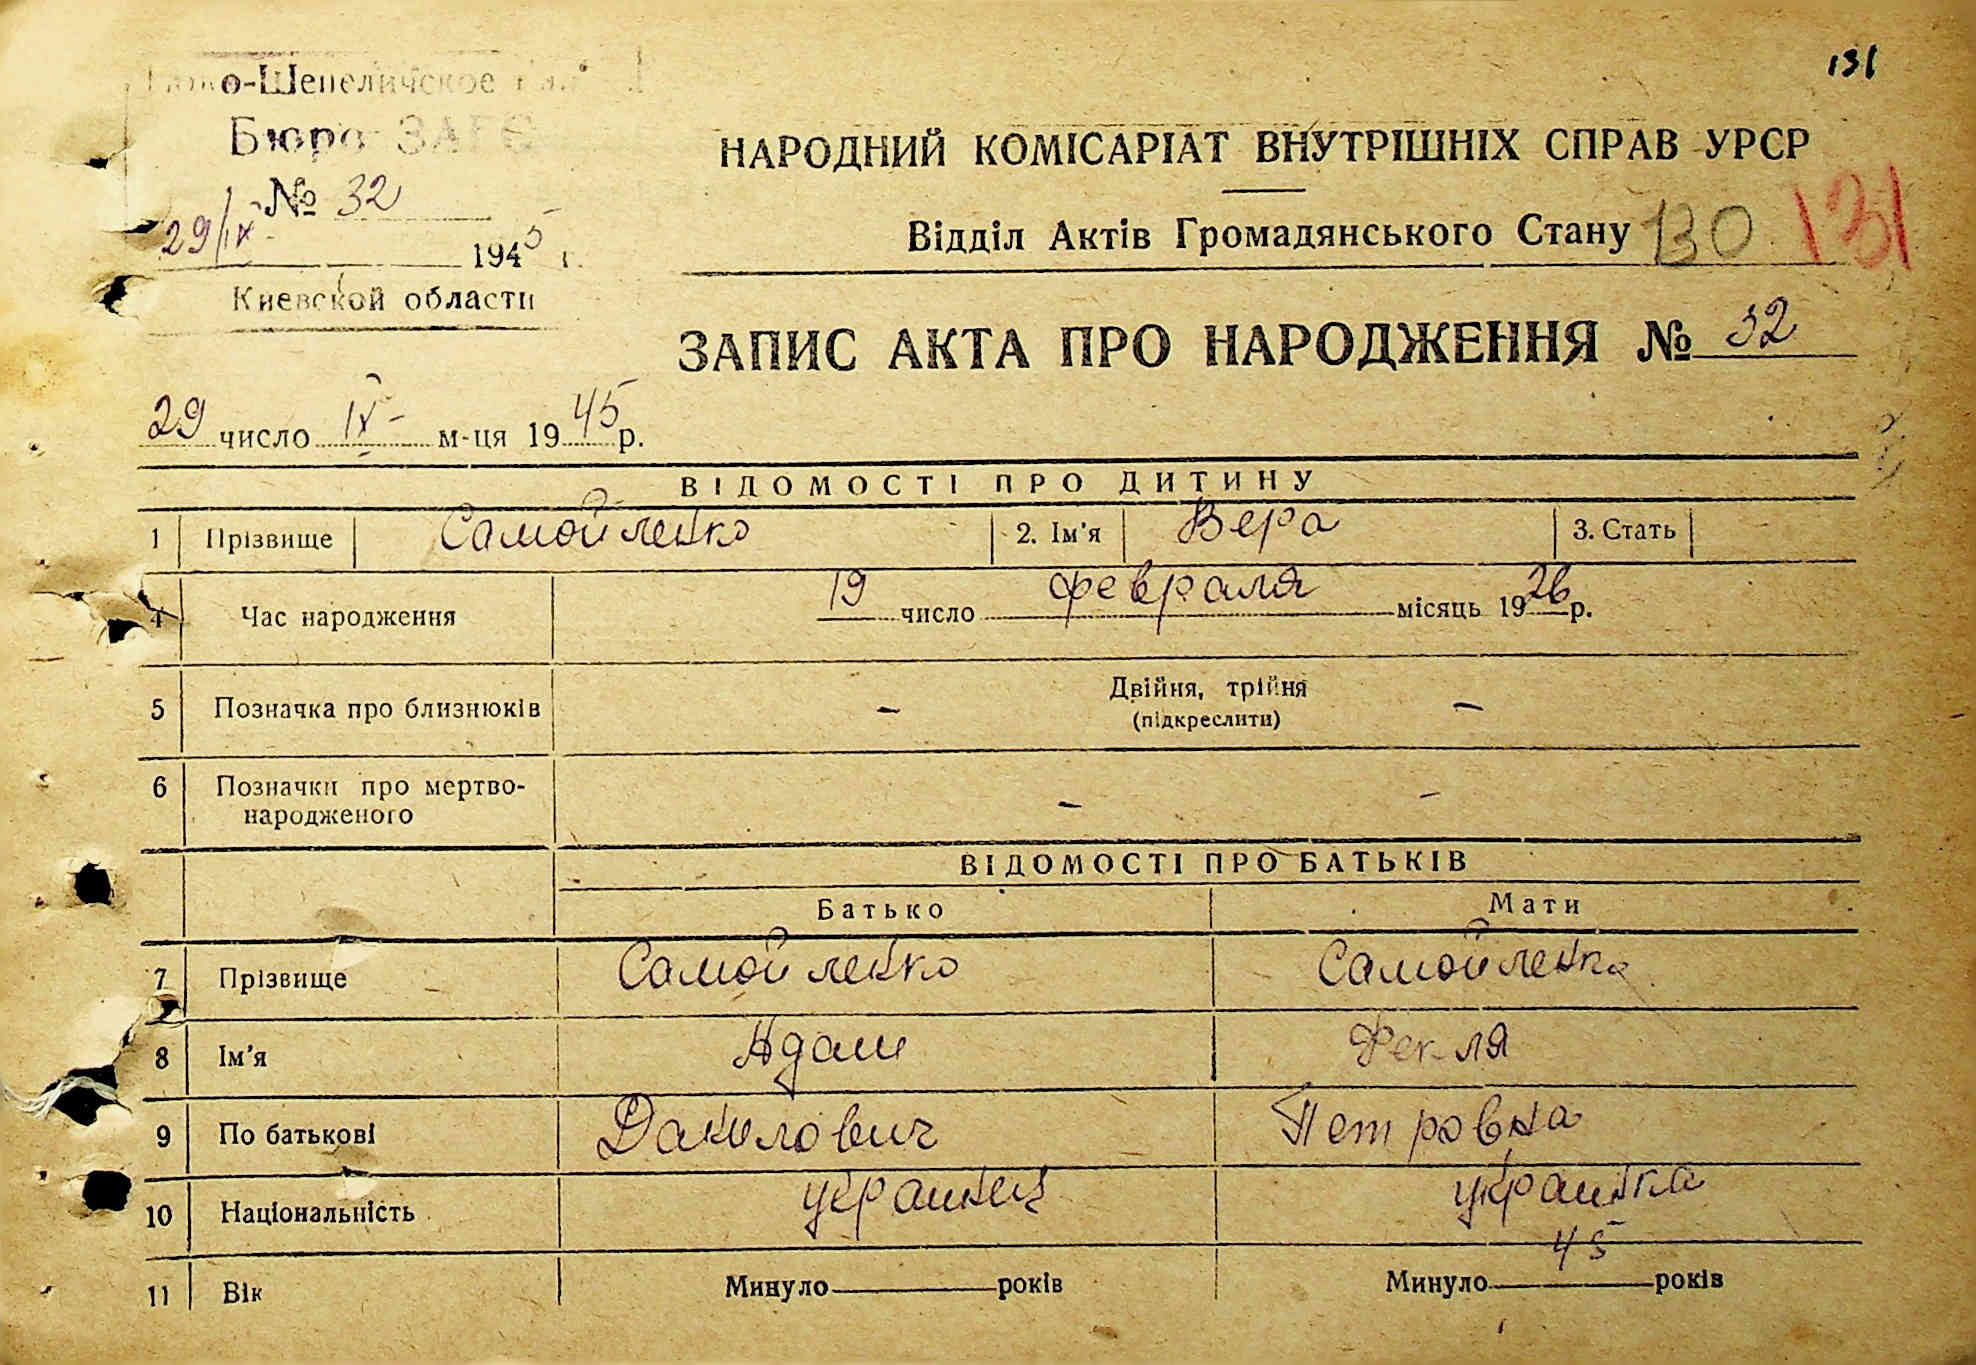 131
о-Шепеличское
Бюро ЗАГС
№ 32
29/IX 1945 г.
Киевской области
НАРОДНИЙ КОМІСАРІАТ ВНУТРІШНІХ СПРАВ УРСР
Відділ Актів Громадянського Стану 130 131
ЗАПИС АКТА ПРО НАРОДЖЕННЯ № 32
29 число IX м-ця 1945 р.
ВІДОМОСТІ ПРО ДИТИНУ
1 Прізвище Самойленко 2. Ім'я Вера 3. Стать
4 Час народження 19 число февраля місяць 1926 р.
5 Позначка про близнюків - Двійня, трійня -
(підкреслити)
6 Позначки про мертво-
народженого - -
ВІДОМОСТІ ПРО БАТЬКІВ
Батько Мати
7 Прізвище Самойленко Самойленко
8 Ім'я Адам Фекля
9 По батькові Данилович Петровна
10 Національність украинец украинка
11 Вік Минуло років Минуло 45 років